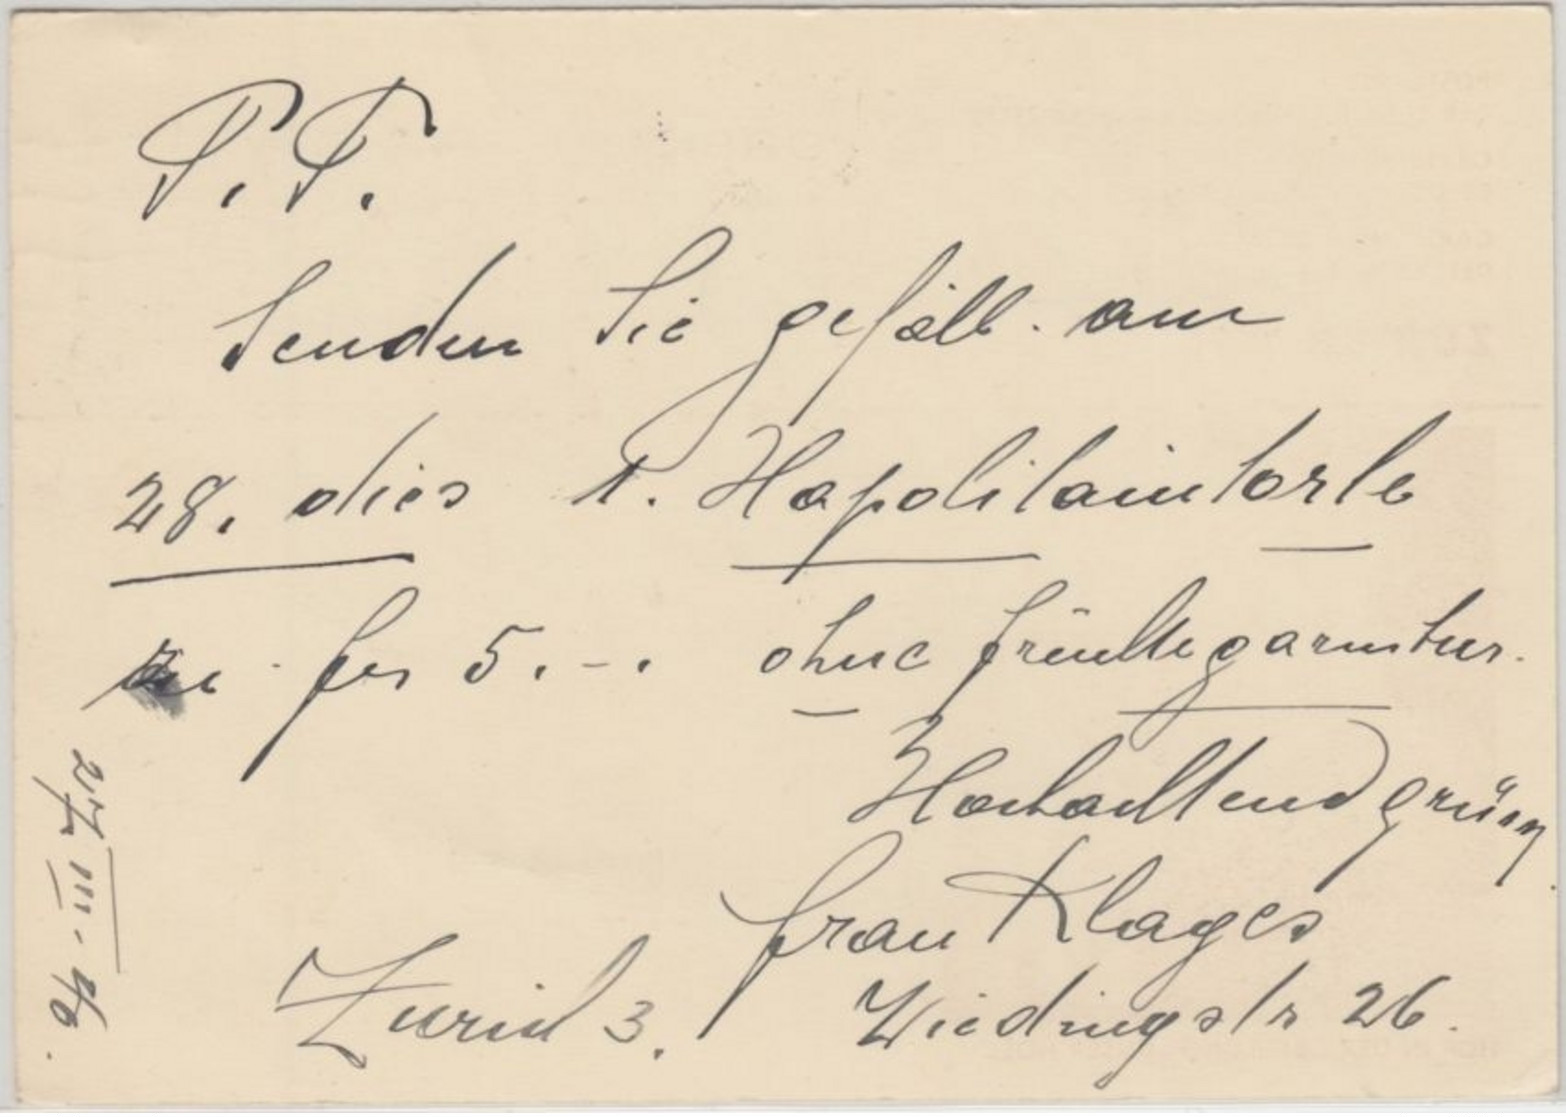 P.P.
Senden Sie gefäll. am
28. dies 1. Napolitaintorte
zu frs 5.-. ohne früchtegarnitur.
Hochachtend grüsse
Frau Klages
Zürich 3. Wiedingstr 26.
27 III. 46.